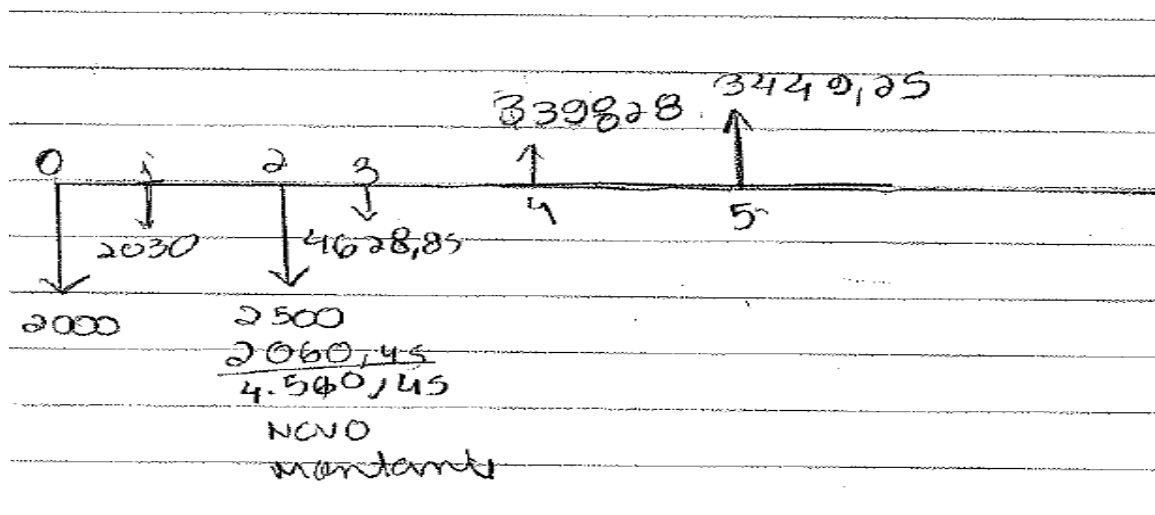 339828
3449,25
0 1 2 3
4 5
2030
4628,85
2000
2500
2060,45
4.560,45
NOVO
montante